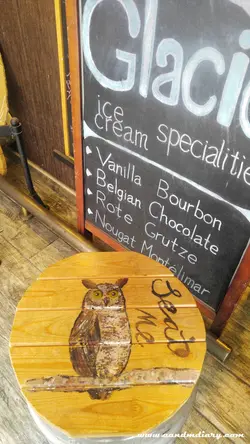 Glacie
ice
cream specialities
Vanilla Bourbon
Belgian Chocolate
Rote Grutze
Nougat Montelimar
Seat
Me
www.aandmdiary.com